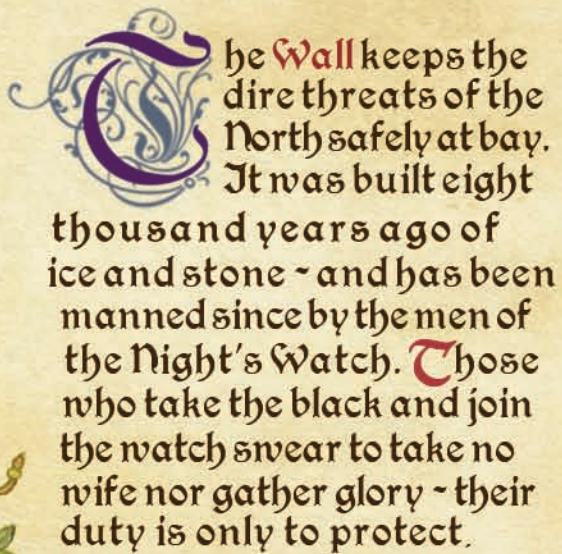 The Wall keeps the
dire threats of the
North safely at bay.
It was built eight
thousand years ago of
ice and stone - and has been
manned since by the men of
the Night's Watch. Those
who take the black and join
the watch swear to take no
wife nor gather glory - their
duty is only to protect.